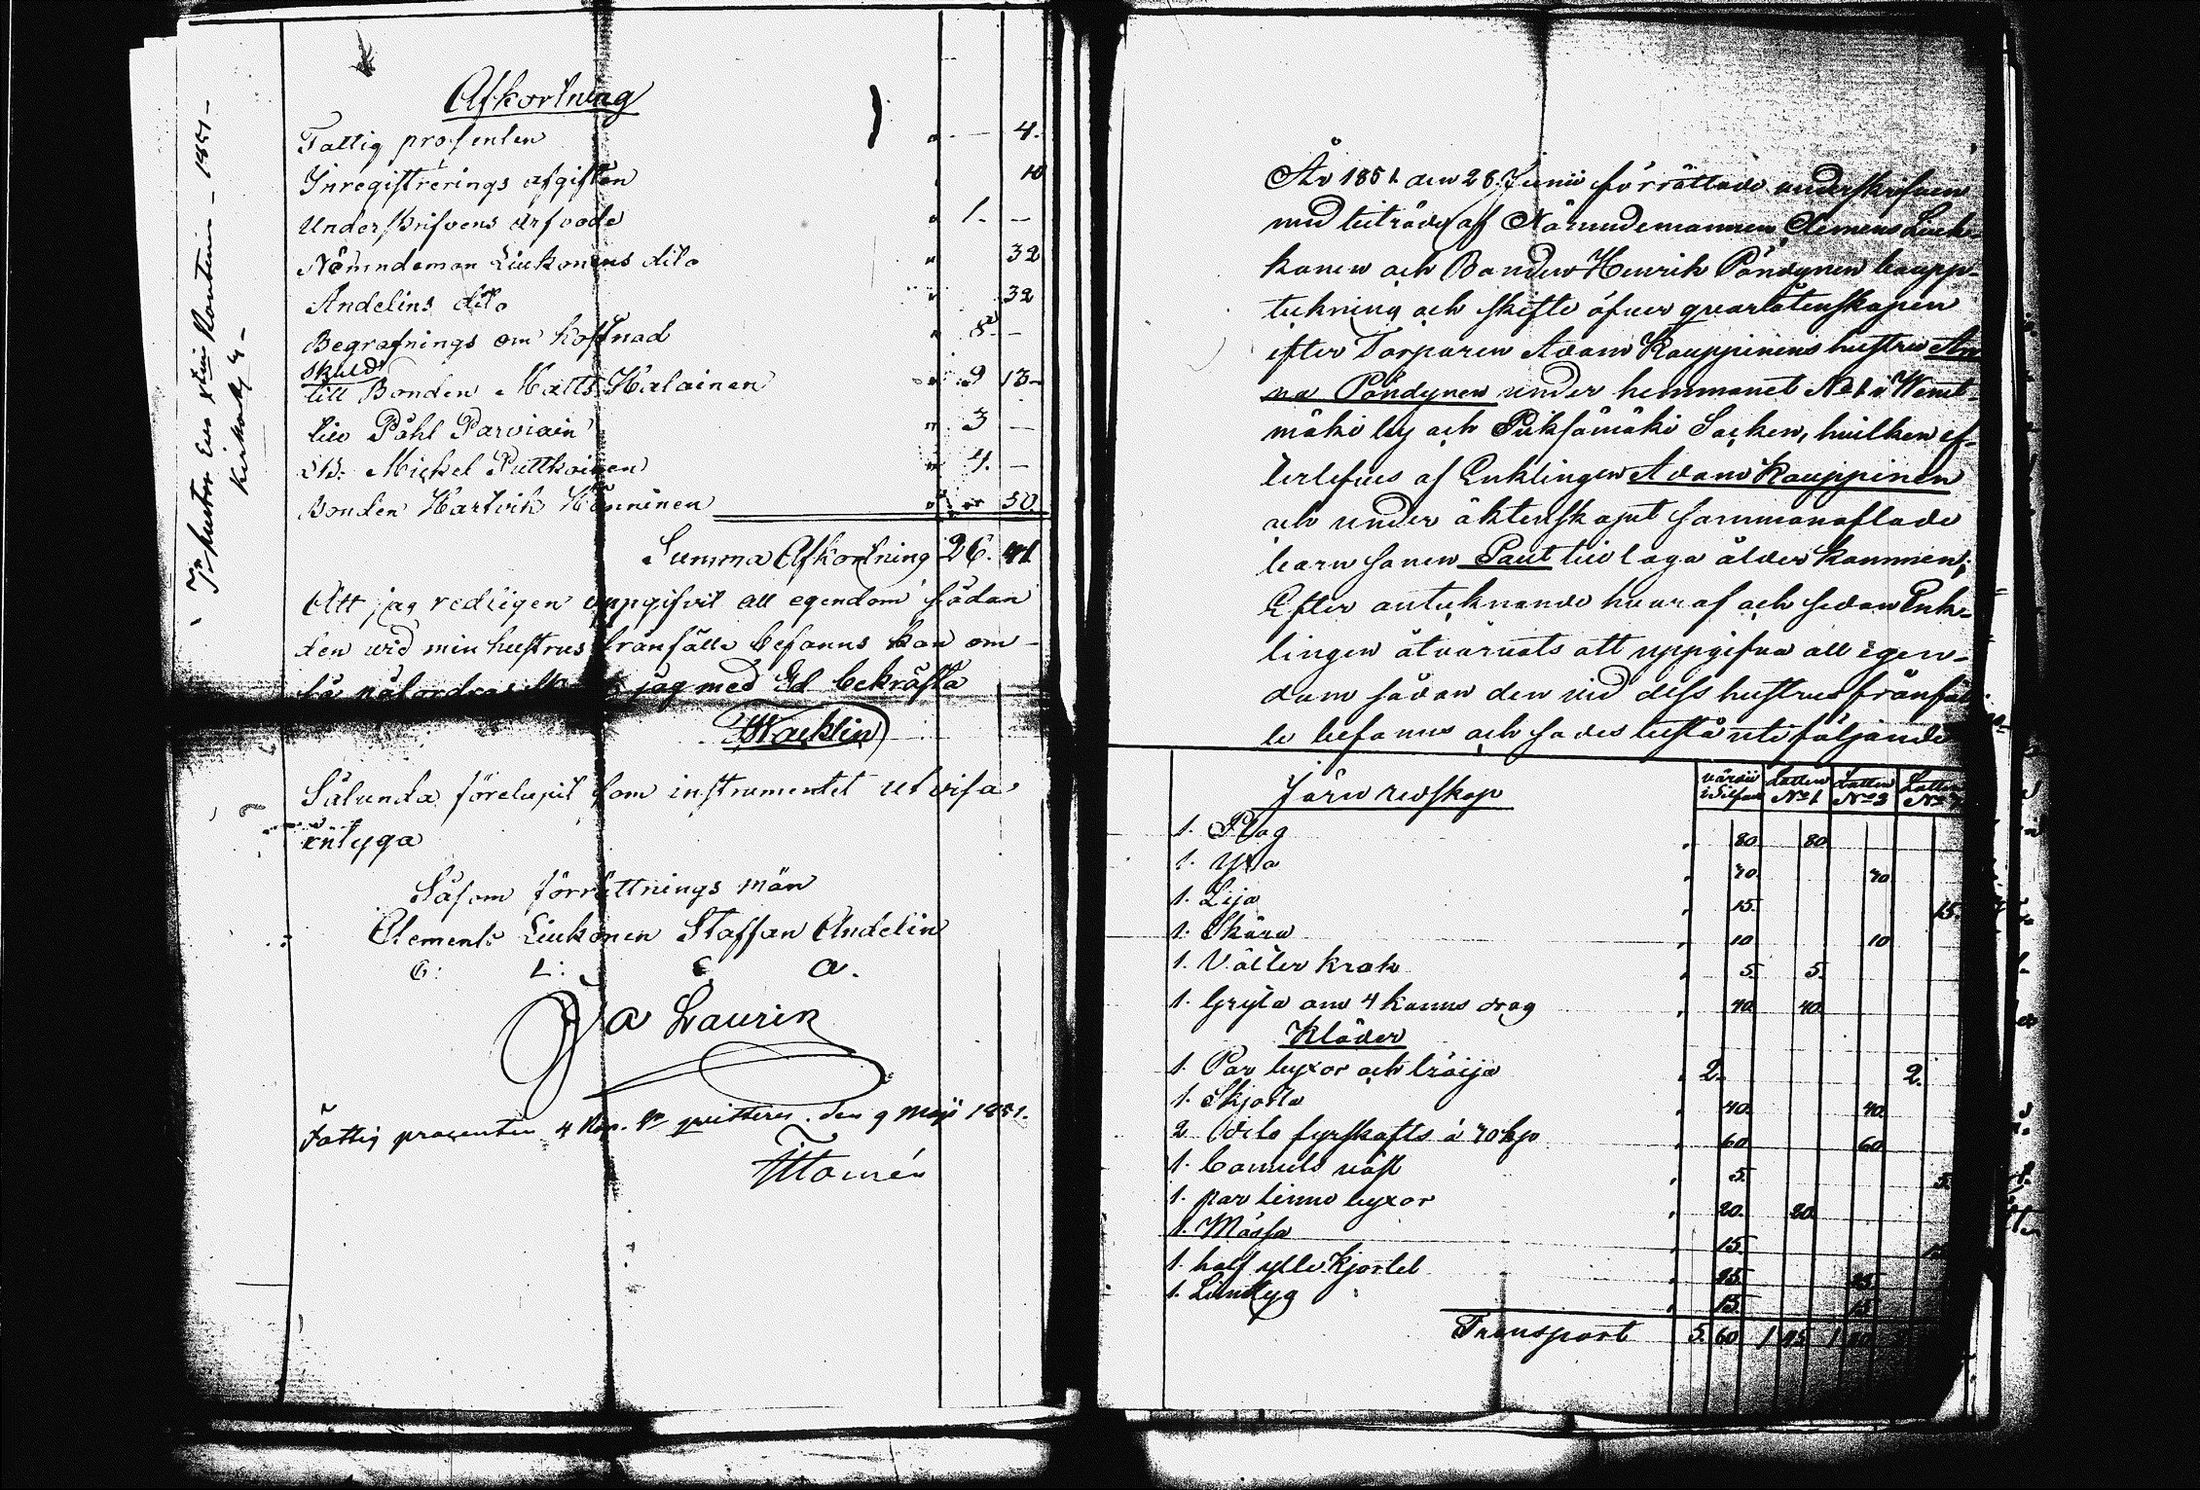 Afkortning
Fattig procenten " — 4.
Inregistrerings afgiften 10
Underskrifvens arfvode " 1. —
Nämndeman Liukonens dito " 32
Andelins dito " 32
Begrafnings om kostnad " 8. —
skuld
till Bonden Matts Halainen " 9 13
till Påhl Parviain " 3 —
Dr. Mickel Puttkoinen " 4. —
Bonden Hartvik Hänninen " " 50
Summa Afkortning 26. 41
Att jag redligen uppgifvit all egendom sådan
den wid min hustrus frånfälle befanns kan om
så påfordras jag med Ed bekräfta
Wacklin
Sålunda förelupit som instrumentet utvisa
intyga
Såsom förrättnings män
Clements Liukonen Staffan Andelin
C: L: S: A.
Laurin
Fattig procenten 4 Kop. Sr qvitteras den 9 Maji 1851.
1851
År 1851 den 28 Junii förrättade underskrifven
med biträde af Nämndemannen Clemens Liuk-
konen och Bonden Henrik Pöndynen boupp-
tekning och skifte öfver qvarlåtenskapen
efter Torparen Adam Kauppinens hustru An
na Pöndynen under hemmanet No 1 i Wenet-
mäki by och Pieksämäki Socken, hvilken ef-
terlefves af Enklingen Adam Kauppinen
och under äktenskapet sammanaflade
barn sonen Paul till laga ålder kommen;
Efter antecknande hvaraf och sedan Enk-
lingen åtvarnats att uppgifva all egen-
dom sådan den vid dess hustrus frånfäl
le befanns och sades bestå uti följande
Järn redskap värde i Silfver Lotten No 1 Lotten No 2 Lotten No
1. Plog " 80 80
1. Yxa " 70 70
1. Lija " 15. 15.
1. Skära " 10 10
1. Välter krok " 5. 5.
1. Gryta om 4 kanns drag " 40 40
Kläder
1. Par byxor och tröija " 2. 2.
1. Skjorta " 40 40
2 Dito fyrskafts à 70 kp " 60 60
1. Camuls väst " 5. 5.
1. par linne byxor " 20. 20
1. Mössa " 15.
1. half ylle Kjortel " 25. 25
1. Lintyg " 15. 15.
Transport 5. 60 1 45